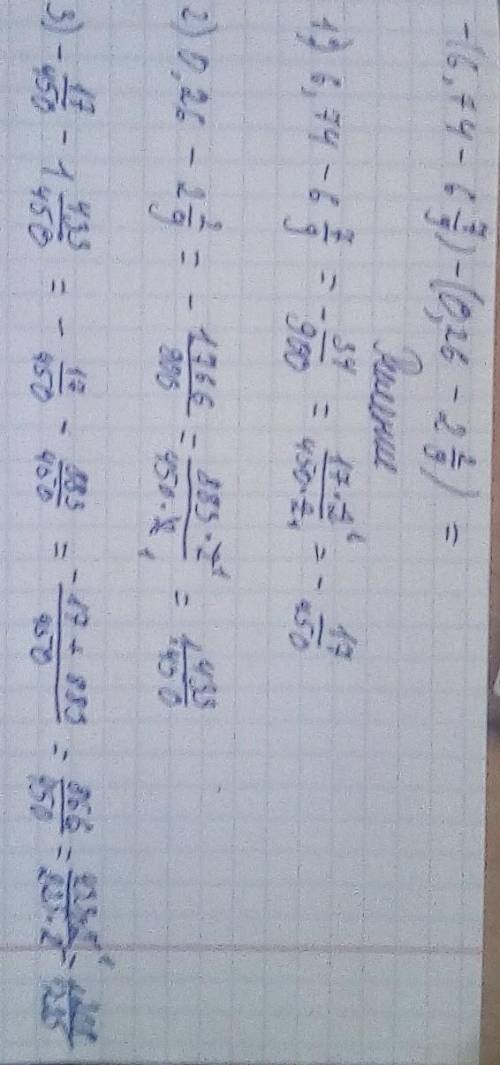 -(6,74 - 6 7/9) - (0,26 - 2 2/9) =
Решение
1) 6,74 - 6 7/9 = - 34/900 = 17·2/450·2 = - 17/450
2) 0,26 - 2 2/9 = - 1766/900 = 883·2/450·2 = 1 433/450
3) - 17/450 - 1 433/450 = - 17/450 - 883/450 = -17+883/450 = 866/450 =